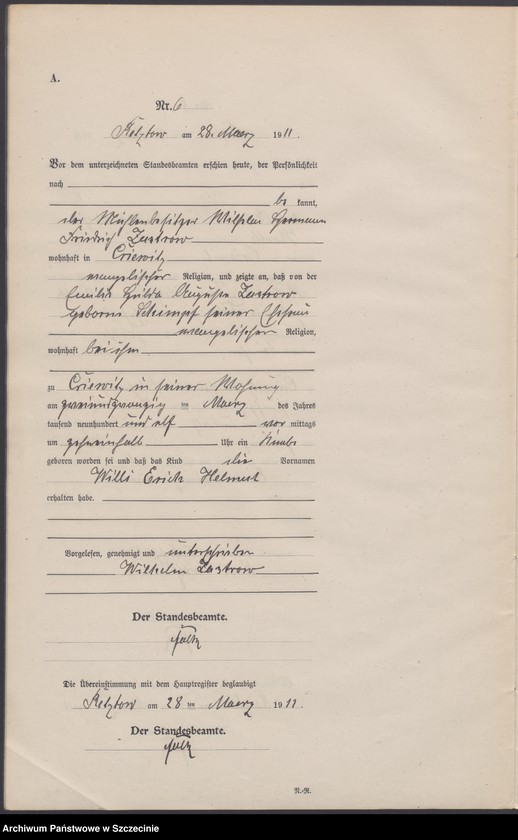 A.
Nr. 6
am 28. Maerz 1911
Vor dem unterzeichneten Standesbeamten erschien heute, der Persönlichkeit
nach
be kannt,
der Mühlenbesitzer Wilhelm Hermann
Friedrich Zastrow
wohnhaft in Criewitz
evangelischer Religion, und zeigte an, daß von der
Emilie Hulda Auguste Zastrow
geborene Schimpf seiner Ehefrau
evangelischer Religion,
wohnhaft bei ihm
zu Criewitz in seiner Wohnung
am zweiundzwanzig ten Maerz des Jahres
tausend neunhundert und elf vor mittags
um Uhr ein Knabe
geboren worden sei und daß das Kind die Vornamen
Willi Erich Helmut
erhalten habe.
Vorgelesen, genehmigt und unterschrieben
Wilhelm Zastrow
Der Standesbeamte.
Die Übereinstimmung mit dem Hauptregister beglaubigt
am 28 ten Maerz 1911
Der Standesbeamte.
N.-R.
Archiwum Państwowe w Szczecinie